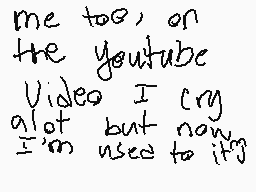 me too, on
the youtube
Video I cry
alot but now
I'm used to it